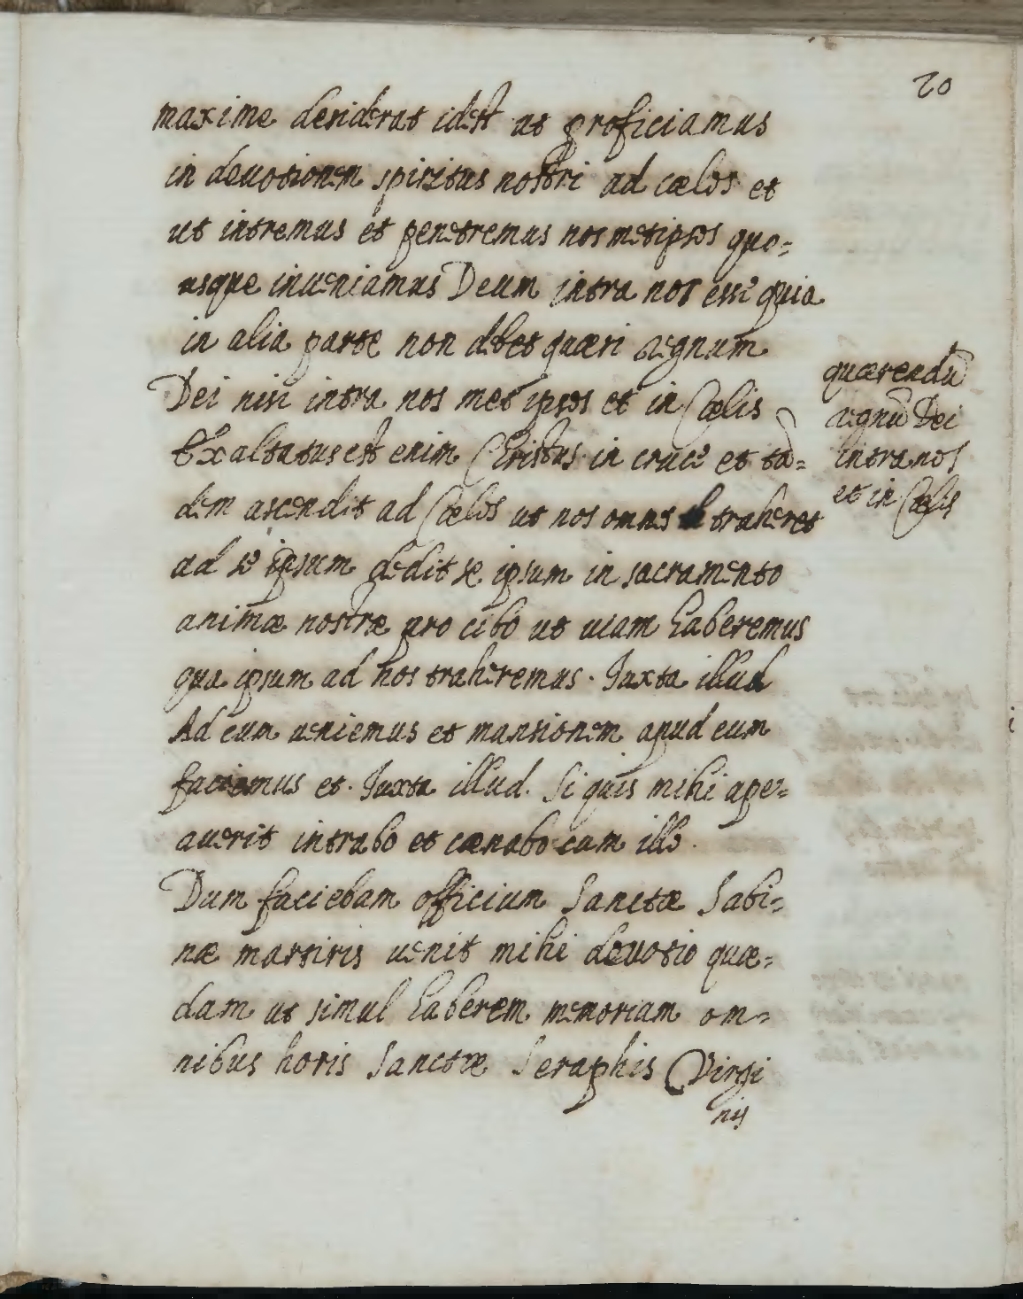 20
maxime desiderat idest ut proficiamus
in deuotionem spiritus nostri ad cælos et
ut intremus et penetremus nos metipsos quo=
usque inueniamus Deum intra nos esse quia
in alia parte non debet quæri regnum
Dei nisi intra nos met ipsos et in Cælis
Exaltatus est enim Christus in cruce et tā=
dem ascendit ad Cælos ut nos omnes traheret
ad se ipsum dedit se ipsum in sacramento
animæ nostræ pro cibo ut uiam haberemus
qua ipsum ad nos traheremus. Iuxta illud
Ad eum ueniemus et mansionem apud eum
faciemus et. Iuxta illud. Si quis mihi ape=
auerit intrabo et cænabo cum illo.
Dum faciebam officium Sanctæ Sabi=
næ martiris uenit mihi deuotio quæ=
dam ut simul haberem memoriam om=
nibus horis Sanctæ Seraphis Virgi
nis
quærendū
regnū Dei
intra nos
et in Cælis